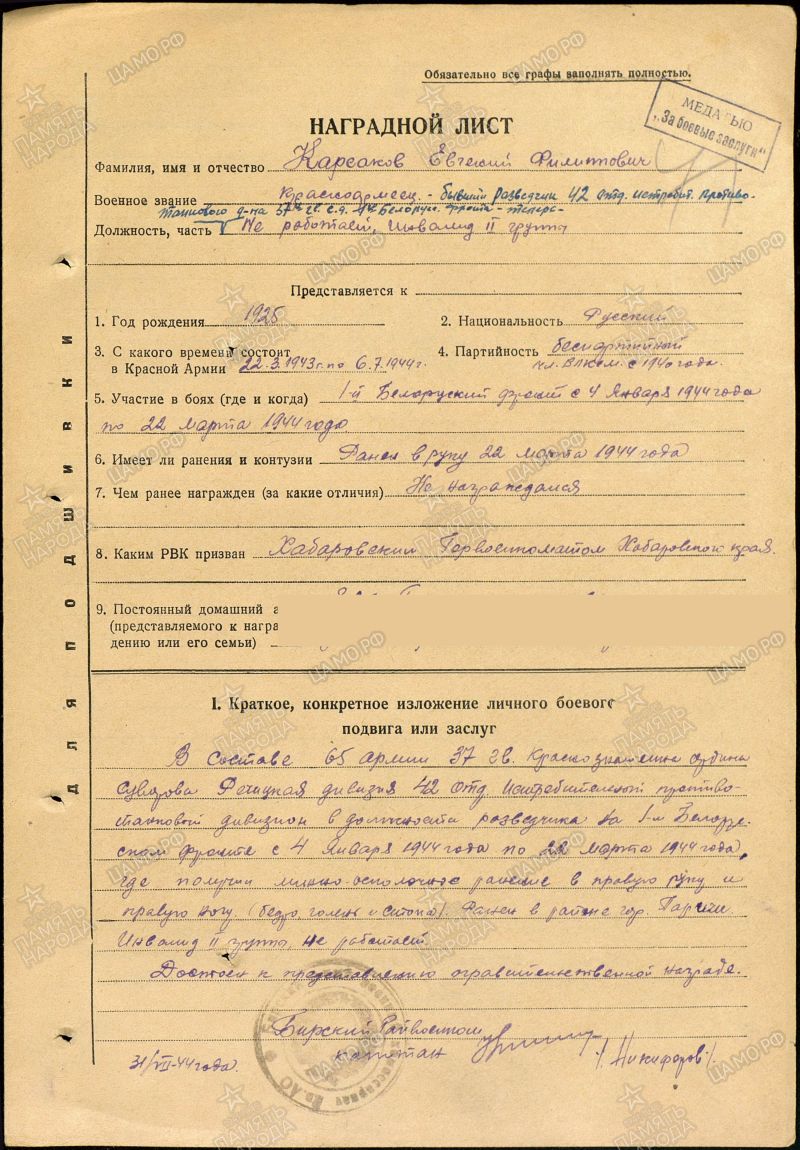 Обязательно все графы заполнять полностью.
МЕДАЛЬЮ
„За боевые заслуги“
НАГРАДНОЙ ЛИСТ
Фамилия, имя и отчество Карсаков Евгений Филиппович
Военное звание красноармеец - бывший разведчик 42 отд. истребит. противо-
танкового д-на 37й гв. с.д. 1го Белорус. фронта - теперь-
Должность, часть Не работает, инвалид II группы
Представляется к
1. Год рождения 1925
2. Национальность Русский
3. С какого времени состоит
в Красной Армии 22.3.1943г. по 6.7.1944г.
4. Партийность беспартийный
чл. ВЛКСМ с 1940 года.
5. Участие в боях (где и когда) 1-й Белоруский фронт с 4 Января 1944 года
по 22 марта 1944 году
6. Имеет ли ранения и контузии Ранен в руку 22 марта 1944 года
7. Чем ранее награжден (за какие отличия) Не награждался
8. Каким РВК призван Хабаровским Горвоенкоматом Хабаровского края.
9. Постоянный домашний а
(представляемого к награ
дению или его семьи)
I. Краткое, конкретное изложение личного боевого
подвига или заслуг
В составе 65 армии 37 гв. Краснознаменна ордена
Суворова Речицкая дивизия 42 отд. Истребительный противо-
танковой дивизион в должности разведчика на 1-м Белору-
ском фронте с 4 Января 1944 года по 22 марта 1944 года,
где получил минно-осколочное ранение в правую руку и
правую ногу (бедро голень и стопа). Ранен в районе гор.
Инвалид II группы, не работает.
Достоен к представлению правительственной награде.
Бирский Райвоенком
капитан /Никифоров/.
31/VII-44 года.
для подшивки
ПАМЯТЬ НАРОДА
ЦАМО.РФ